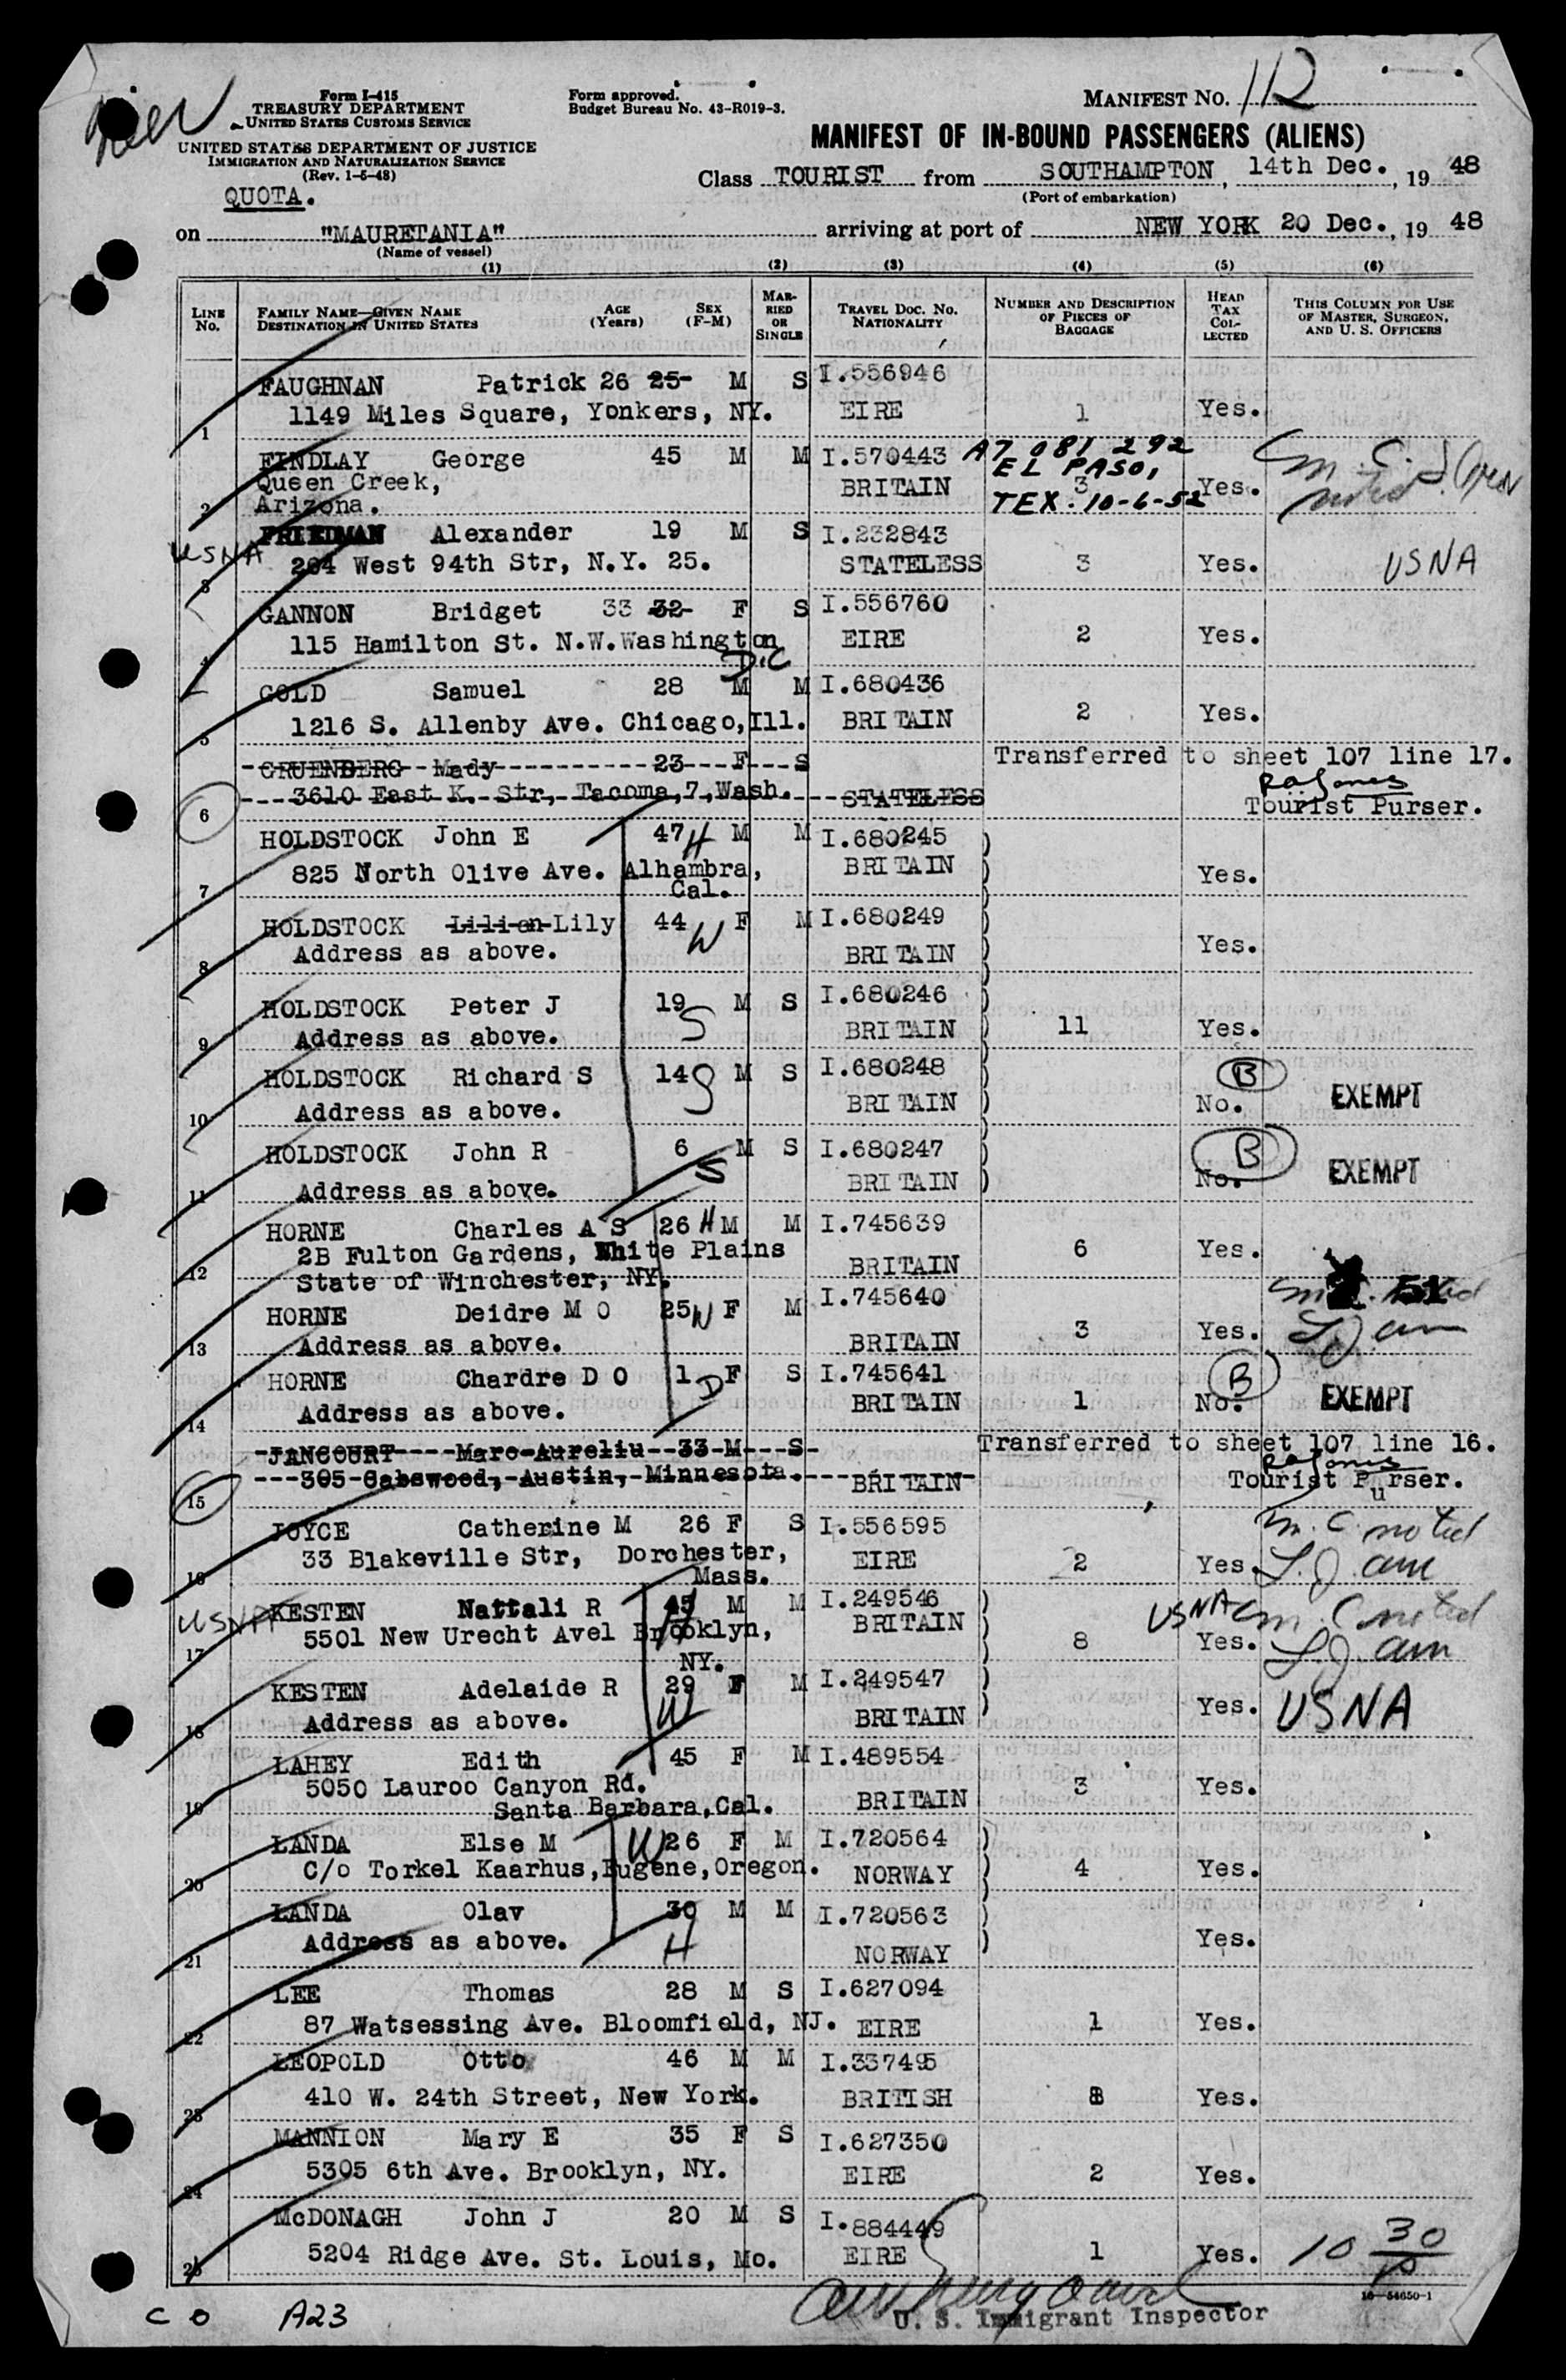 Form I-415
TREASURY DEPARTMENT
UNITED STATES CUSTOMS SERVICE
UNITED STATES DEPARTMENT OF JUSTICE
IMMIGRATION AND NATURALIZATION SERVICE
(Rev. 1-5-48)
QUOTA.
Form approved.
Budget Bureau No. 43-R019-3.
MANIFEST NO. 112
MANIFEST OF IN-BOUND PASSENGERS (ALIENS)
Class TOURIST from SOUTHAMPTON, 14th Dec., 19 48
(Port of embarkation)
on "MAURETANIA" arriving at port of NEW YORK 20 Dec., 19 48
(Name of vessel)
(1) (2) (3) (4) (5) (6)
LINE No. FAMILY NAME—GIVEN NAME DESTINATION IN UNITED STATES AGE (Years) SEX (F-M) MARRIED OR SINGLE TRAVEL DOC. NO. NATIONALITY NUMBER AND DESCRIPTION OF PIECES OF BAGGAGE HEAD TAX COLLECTED THIS COLUMN FOR USE OF MASTER, SURGEON, AND U. S. OFFICERS
FAUGHNAN Patrick 26 25 M S I.556946
1 1149 Miles Square, Yonkers, NY. EIRE 1 Yes.
FINDLAY George 45 M M I.570443 A7 081 292
Queen Creek, BRITAIN EL PASO, 3 Yes. m.c. noted
2 Arizona. TEX. 10-6-52
USNA FRIEDMAN Alexander 19 M S I.232843
3 204 West 94th Str, N.Y. 25. STATELESS 3 Yes. USNA
GANNON Bridget 33 32 F S I.556760
4 115 Hamilton St. N.W.Washington D.C EIRE 2 Yes.
GOLD Samuel 28 M M I.680436
5 1216 S. Allenby Ave. Chicago,Ill. BRITAIN 2 Yes.
GRUENBERG Mady 23 F S Transferred to sheet 107 line 17.
6 3610 East K. Str, Tacoma,7,Wash. STATELESS Tourist Purser.
HOLDSTOCK John E 47 H M M I.680245
7 825 North Olive Ave. Alhambra, Cal. BRITAIN Yes.
HOLDSTOCK Lilian Lily 44 W F M I.680249
8 Address as above. BRITAIN Yes.
HOLDSTOCK Peter J 19 S M S I.680246
9 Address as above. BRITAIN 11 Yes.
HOLDSTOCK Richard S 14 S M S I.680248 B
10 Address as above. BRITAIN No. EXEMPT
HOLDSTOCK John R 6 S M S I.680247 B
11 Address as above. BRITAIN No. EXEMPT
HORNE Charles A S 26 H M M I.745639
2B Fulton Gardens, White Plains 6 Yes.
12 State of Winchester, NY. BRITAIN
HORNE Deidre M O 25 W F M I.745640
13 Address as above. BRITAIN 3 Yes.
HORNE Chardre D O 1 D F S I.745641 B
14 Address as above. BRITAIN 1 No. EXEMPT
JANCOURT Marc-Aureliu 33 M S Transferred to sheet 107 line 16.
15 305 Oabswood, Austin, Minnesota. BRITAIN Tourist Purser.
JOYCE Catherine M 26 F S I.556595 m.c. noted
16 33 Blakeville Str, Dorchester, Mass. EIRE 2 Yes.
USNA KESTEN Nattali R 45 H M M I.249546 USNA m.c. noted
17 5501 New Urecht Avel Brooklyn, NY. BRITAIN 8 Yes.
KESTEN Adelaide R 29 W F M I.249547
18 Address as above. BRITAIN Yes. USNA
LAHEY Edith 45 F M I.489554
5050 Lauroo Canyon Rd. 3 Yes.
19 Santa Barbara,Cal. BRITAIN
LANDA Else M W 26 F M I.720564
20 C/o Torkel Kaarhus,Eugene,Oregon. NORWAY 4 Yes.
LANDA Olav 30 H M M I.720563
21 Address as above. NORWAY Yes.
LEE Thomas 28 M S I.627094
22 87 Watsessing Ave. Bloomfield, NJ. EIRE 1 Yes.
LEOPOLD Otto 46 M M I.337495
23 410 W. 24th Street, New York. BRITISH 8 Yes.
MANNION Mary E 35 F S I.627350
24 5305 6th Ave. Brooklyn, NY. EIRE 2 Yes.
McDONAGH John J 20 M S I.884449
25 5204 Ridge Ave. St. Louis, Mo. EIRE 1 Yes. 10 30
16—54650-1
C O A23
U. S. Immigrant Inspector